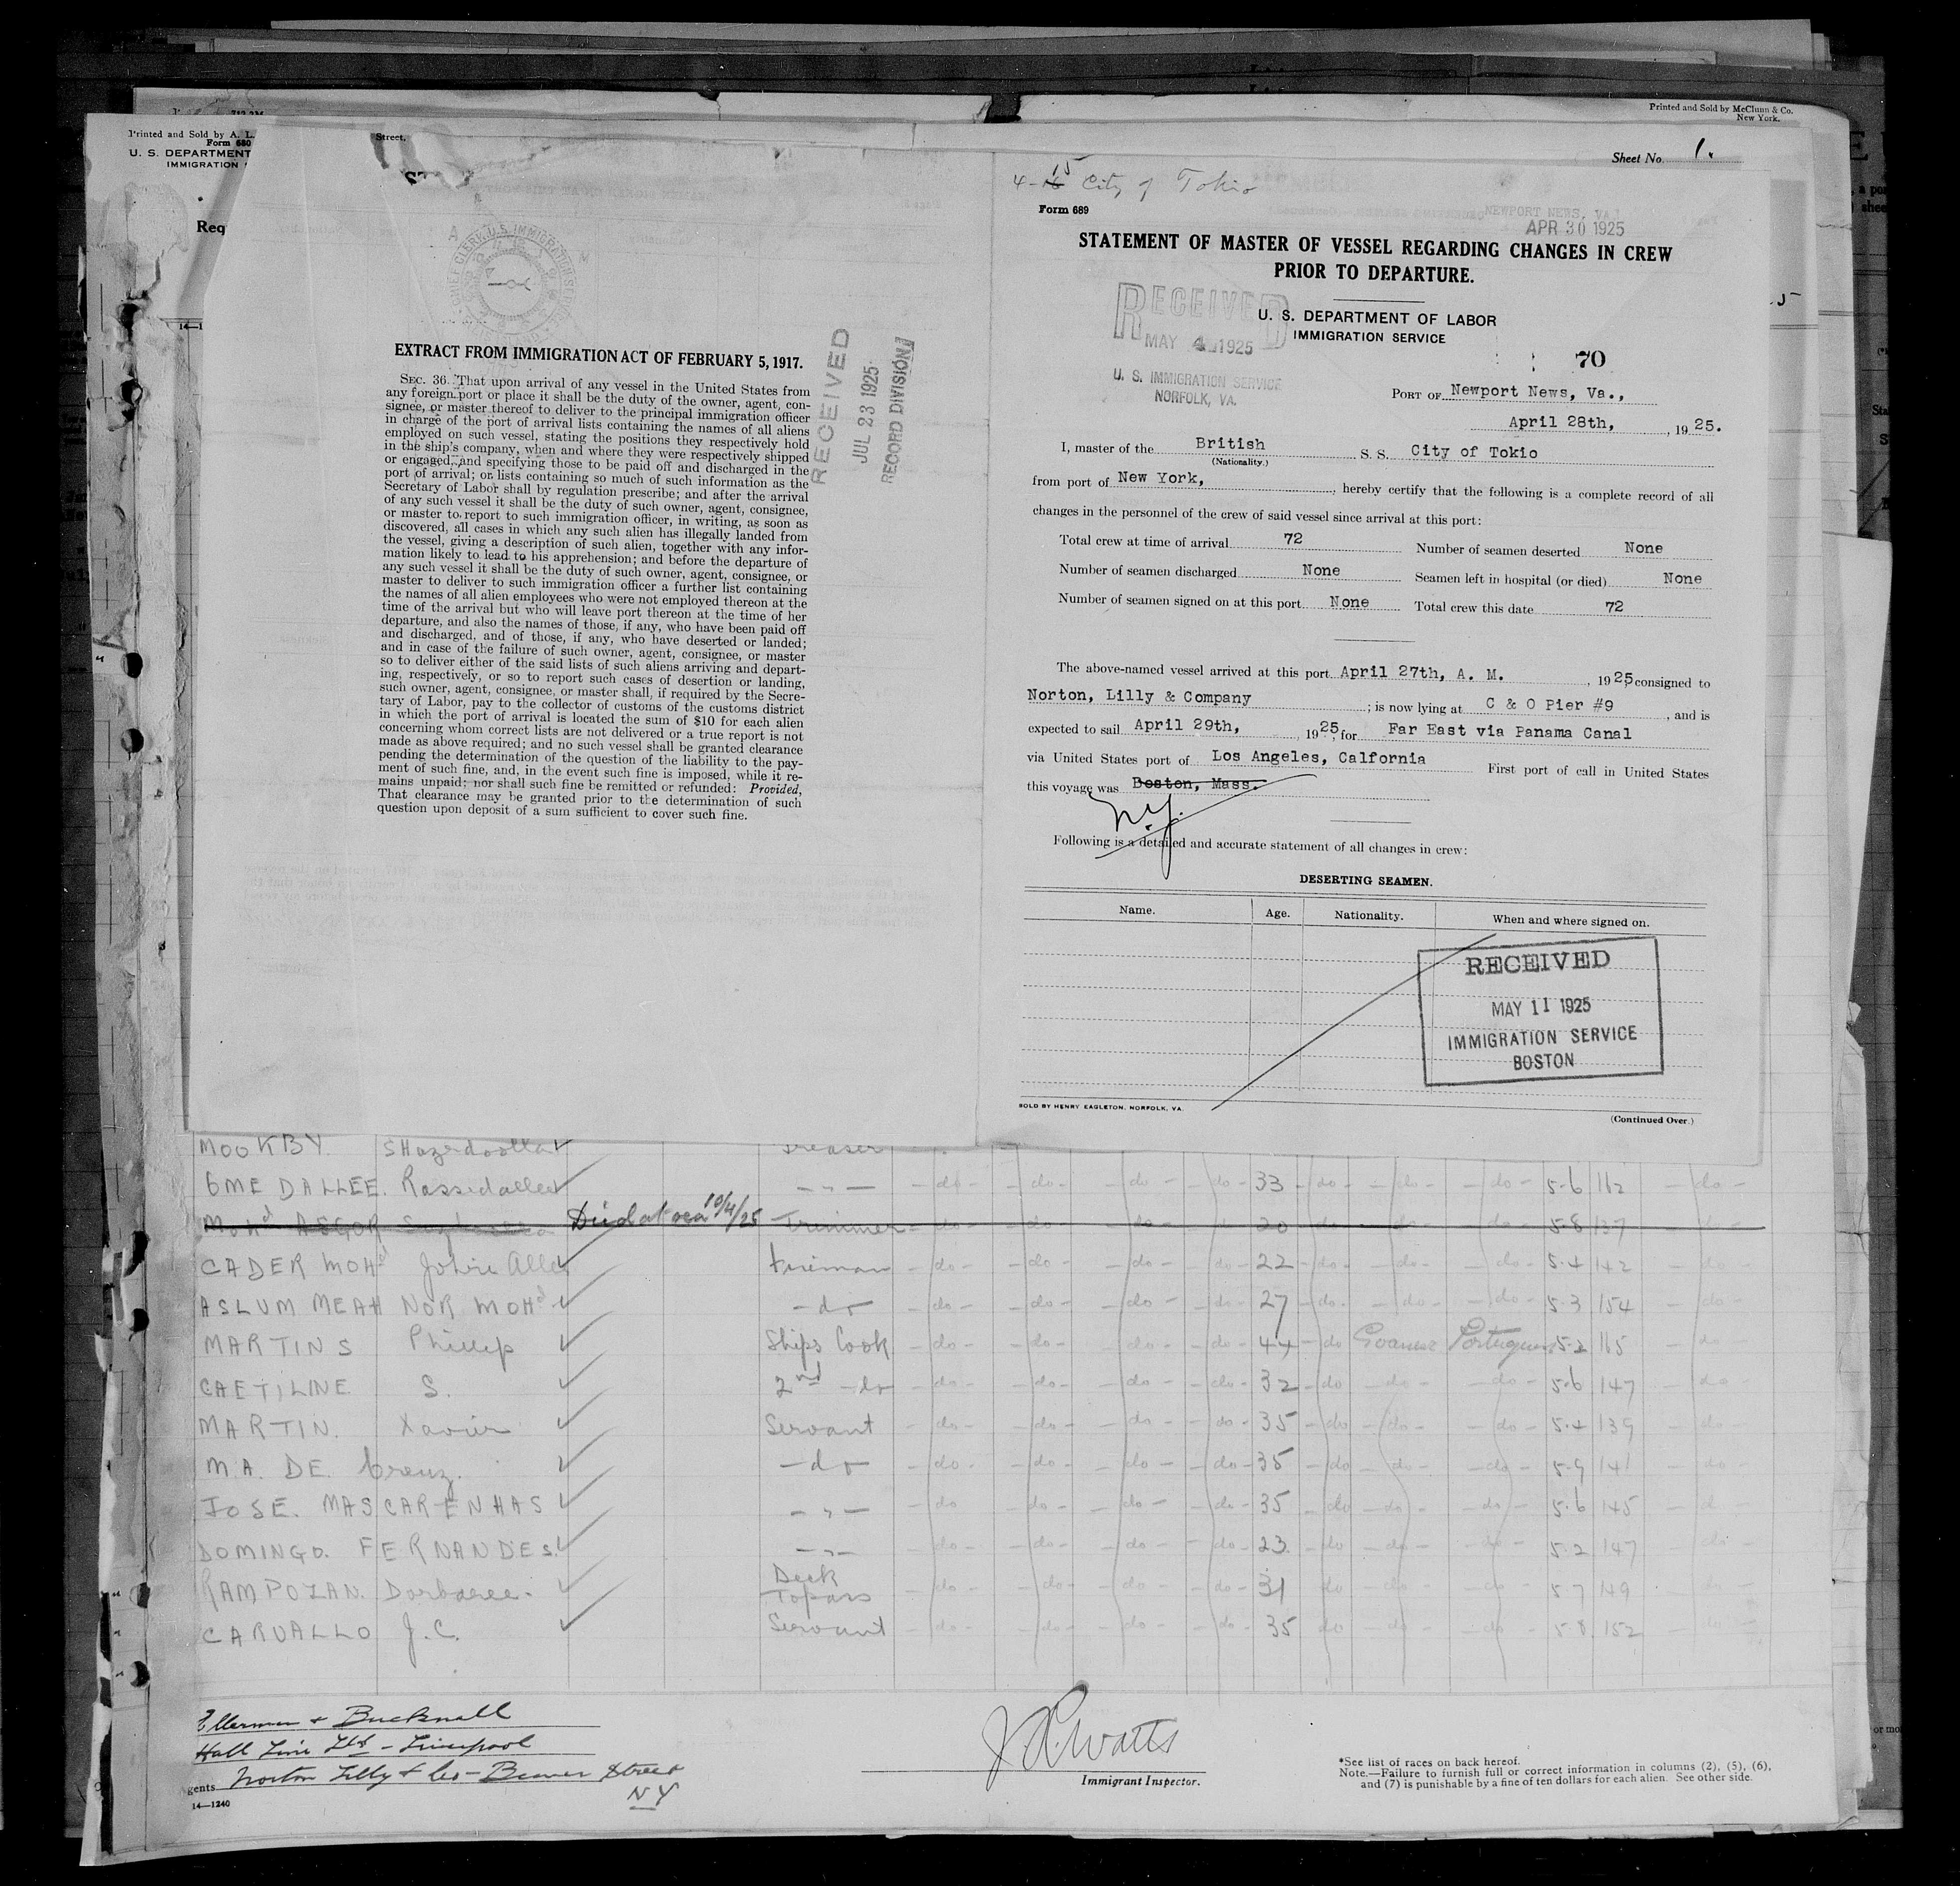 Printed and Sold by McClunn & Co.
New York.
Printed and Sold by A. L.
Form 680
U. S. DEPARTMENT
IMMIGRATION
Street.
Req
14—1
Sheet No. 1.
EXTRACT FROM IMMIGRATION ACT OF FEBRUARY 5, 1917.
SEC. 36. That upon arrival of any vessel in the United States from
any foreign port or place it shall be the duty of the owner, agent, con-
signee, or master thereof to deliver to the principal immigration officer
in charge of the port of arrival lists containing the names of all aliens
employed on such vessel, stating the positions they respectively hold
in the ship's company, when and where they were respectively shipped
or engaged, and specifying those to be paid off and discharged in the
port of arrival; or lists containing so much of such information as the
Secretary of Labor shall by regulation prescribe; and after the arrival
of any such vessel it shall be the duty of such owner, agent, consignee,
or master to report to such immigration officer, in writing, as soon as
discovered, all cases in which any such alien has illegally landed from
the vessel, giving a description of such alien, together with any infor-
mation likely to lead to his apprehension; and before the departure of
any such vessel it shall be the duty of such owner, agent, consignee, or
master to deliver to such immigration officer a further list containing
the names of all alien employees who were not employed thereon at the
time of the arrival but who will leave port thereon at the time of her
departure, and also the names of those, if any, who have been paid off
and discharged, and of those, if any, who have deserted or landed;
and in case of the failure of such owner, agent, consignee, or master
so to deliver either of the said lists of such aliens arriving and depart-
ing, respectively, or so to report such cases of desertion or landing,
such owner, agent, consignee, or master shall, if required by the Secre-
tary of Labor, pay to the collector of customs of the customs district
in which the port of arrival is located the sum of $10 for each alien
concerning whom correct lists are not delivered or a true report is not
made as above required; and no such vessel shall be granted clearance
pending the determination of the question of the liability to the pay-
ment of such fine, and, in the event such fine is imposed, while it re-
mains unpaid; nor shall such fine be remitted or refunded: Provided,
That clearance may be granted prior to the determination of such
question upon deposit of a sum sufficient to cover such fine.
RECEIVED
JUL 23 1925
RECORD DIVISION
4-15 City of Tokio
Form 689
NEWPORT NEWS, VA.
APR 30 1925
STATEMENT OF MASTER OF VESSEL REGARDING CHANGES IN CREW
PRIOR TO DEPARTURE.
RECEIVED
MAY 4 1925
U. S. IMMIGRATION SERVICE
NORFOLK, VA.
U. S. DEPARTMENT OF LABOR
IMMIGRATION SERVICE
70
PORT OF Newport News, Va.,
April 28th, , 1925.
I, master of the British S. S. City of Tokio
(Nationality.)
from port of New York, , hereby certify that the following is a complete record of all
changes in the personnel of the crew of said vessel since arrival at this port:
Total crew at time of arrival 72 Number of seamen deserted None
Number of seamen discharged None Seamen left in hospital (or died) None
Number of seamen signed on at this port None Total crew this date 72
The above-named vessel arrived at this port April 27th, A. M. , 1925, consigned to
Norton, Lilly & Company ; is now lying at C & O Pier #9 , and is
expected to sail April 29th, , 1925, for Far East via Panama Canal
via United States port of Los Angeles, Calfornia First port of call in United States
this voyage was Boston, Mass.
N.Y.
Following is a detailed and accurate statement of all changes in crew:
DESERTING SEAMEN.
Name. Age. Nationality. When and where signed on.
RECEIVED
MAY 11 1925
IMMIGRATION SERVICE
BOSTON
SOLD BY HENRY EAGLETON, NORFOLK, VA.
(Continued Over.)
MOOKBY
- do - - do - - do - - do - 33 - do - - do - - do - 5-6 162 - do -
Died at sea 10/4/25 Trimmer 20 5-8 137
CADER MOHd Fireman - do - - do - - do - - do - 22 - do - - do - - do - 5.4 142 - do -
ASLUM MEAH NOR MOHd - do - - do - - do - - do - - do - 27 - do - - do - - do - 5.3 154 - do -
MARTINS Phillip Ships Cook - do - - do - - do - - do - 44 - do Goanese Portuguese 5.2 165 - do
CAETILINE S. 2nd - do - do - - do - - do - - do - 32 - do - do - - do - 5.6 147 - do
MARTIN. Xavier Servant - do - - do - - do - - do - 35 - do - do - - do - 5.4 139 - do
M.A. DE Creuz. - do - do - - do - - do - - do - 35 - do - do - - do - 5.9 141 - do
JOSE. MASCARENHAS - " - - do - do - - do - - do - 35 - do - do - - do - 5.6 145
DOMINGO. FERNANDES. - " - - do - - do - - do - - do - 23 - do - do - - do - 5.2 147 - do -
RAMPOZAN. Deck Topass - do - - do - - do - - do - 31 do - do - - do - 5.7 149 - do -
CARVALLO J.C. Servant - do - - do - - do - - do - 35 do - do - - do - 5.8 152 - do -
Ellerman & Bucknall
Hall Line Ltd - Liverpool
gents Norton Lilly & Co - Beaver Street
NY
14—1240
Immigrant Inspector.
*See list of races on back hereof.
Note.—Failure to furnish full or correct information in columns (2), (5), (6),
and (7) is punishable by a fine of ten dollars for each alien. See other side.